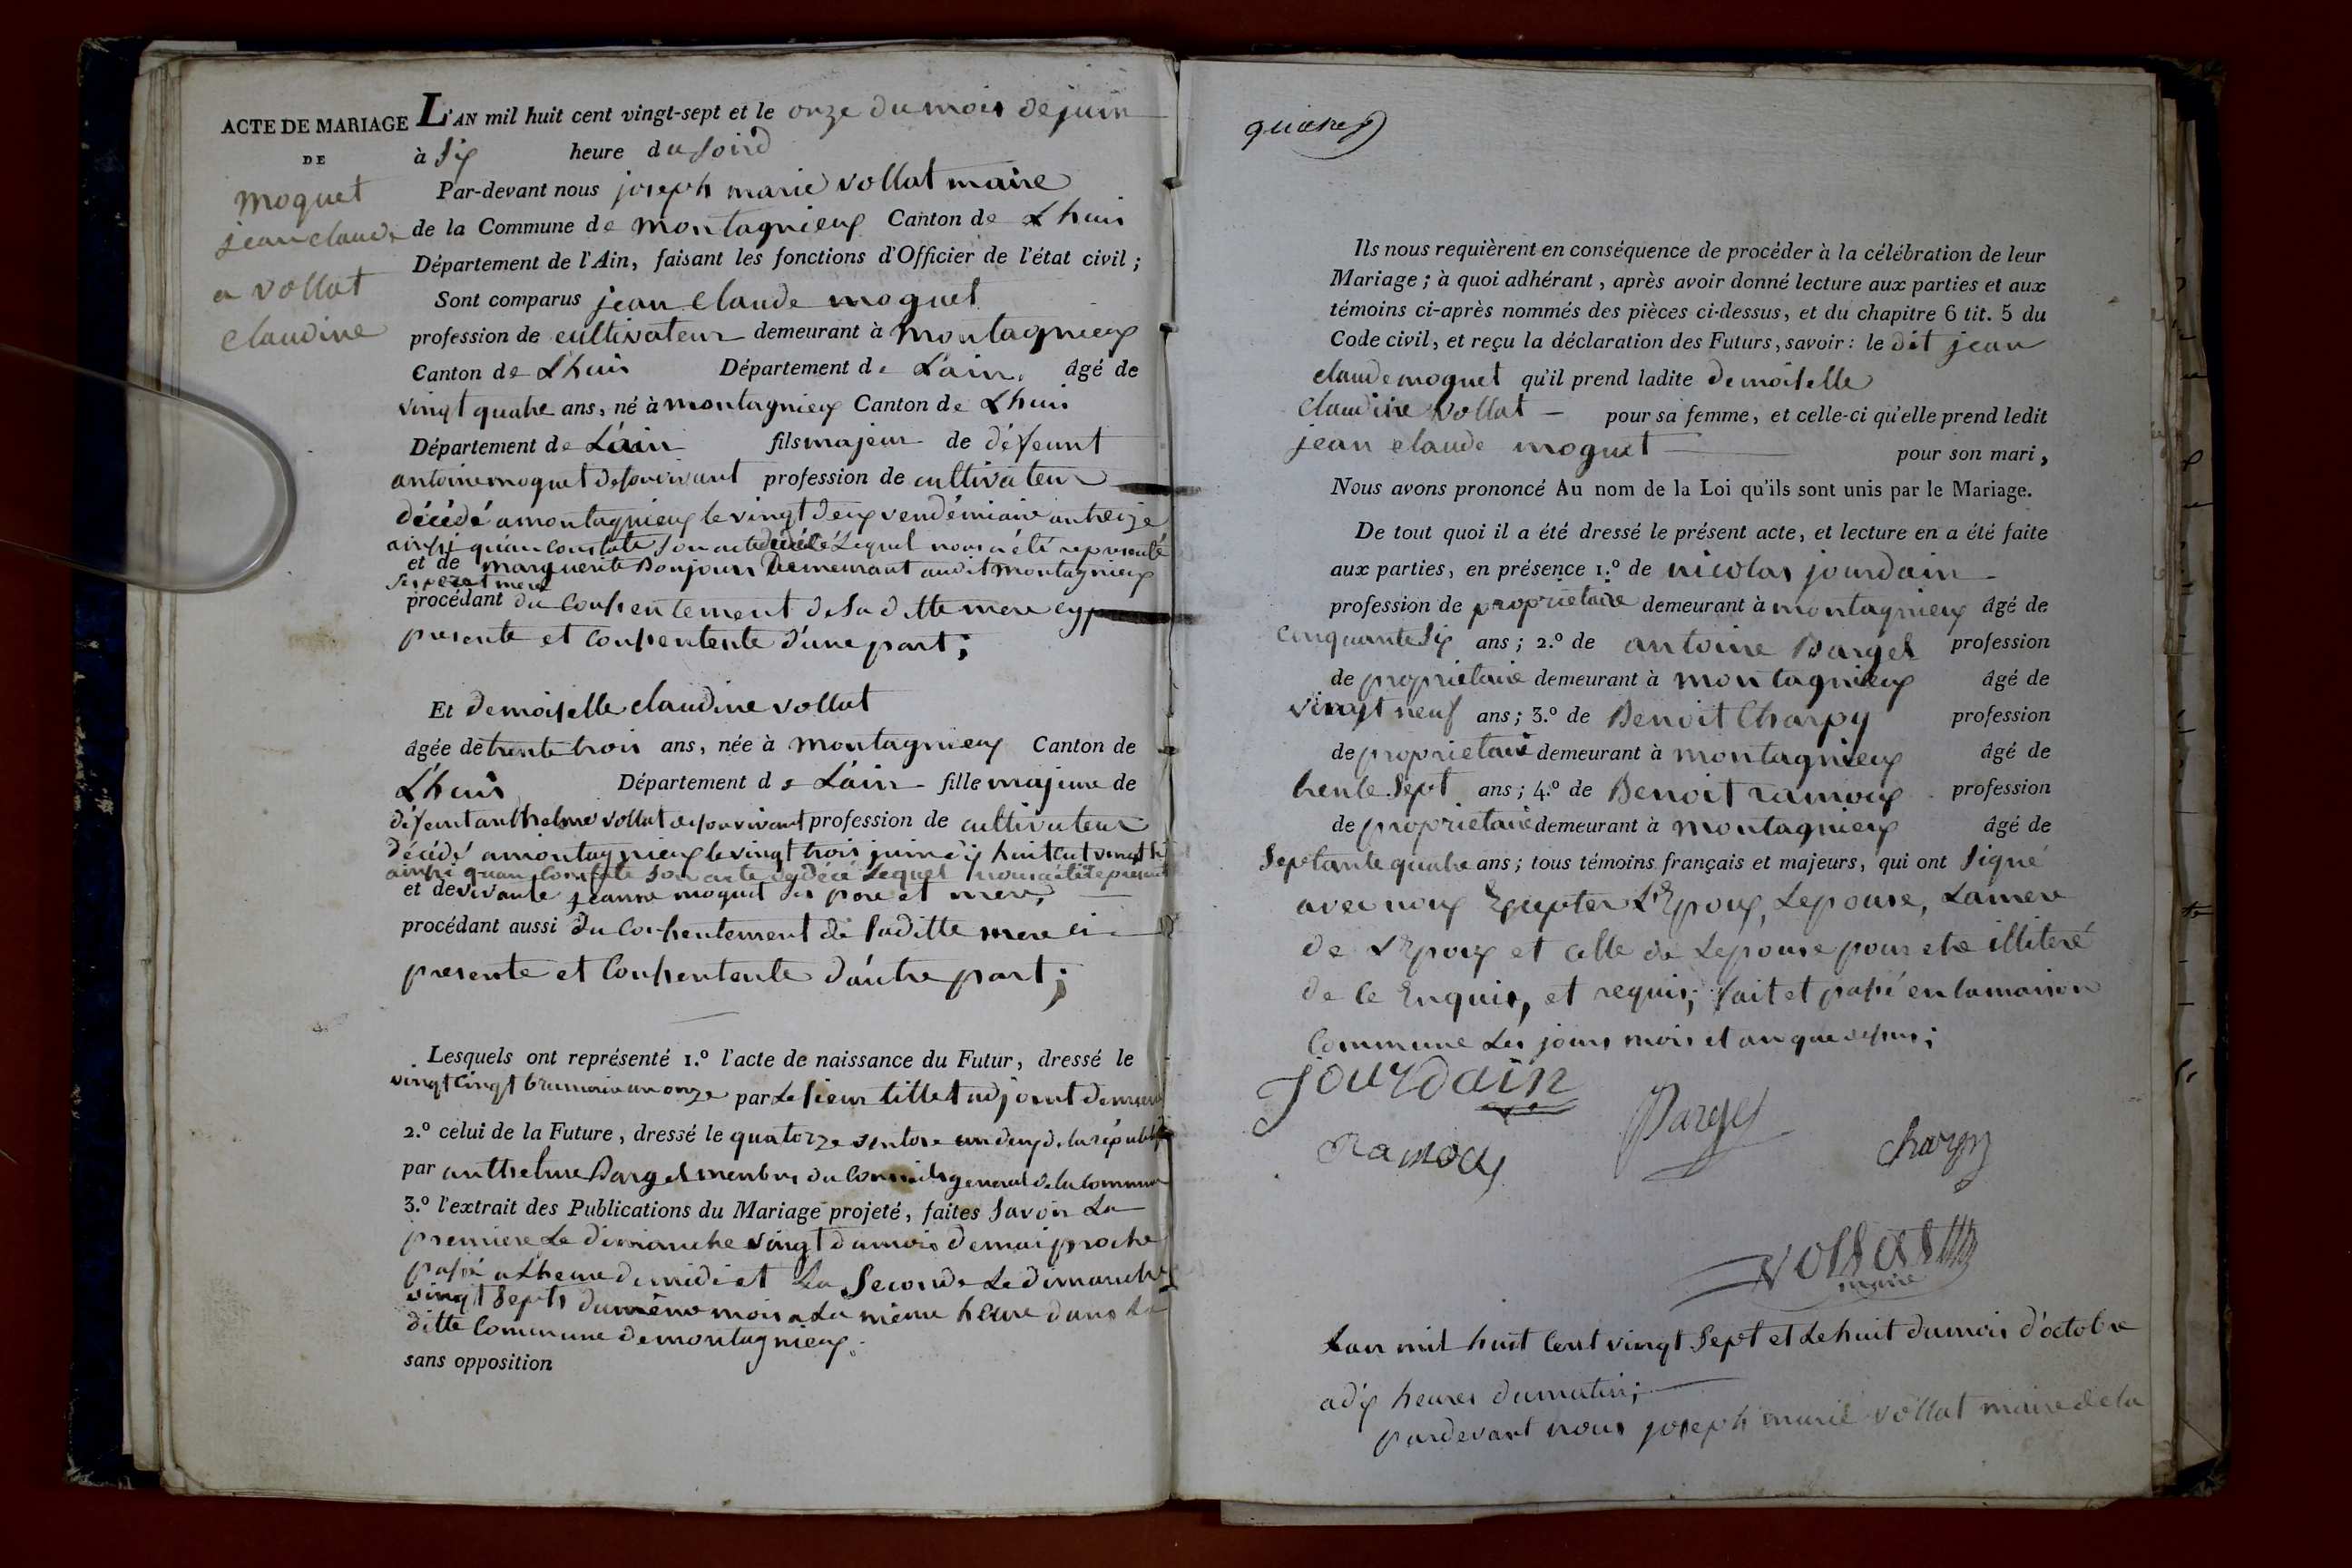 ACTE DE MARIAGE
DE
moquet
jean claude
a vollat
claudine
L'AN mil huit cent vingt-sept et le onze du mois de juin
à Six heure du soird
Par-devant nous joseph marie vollat maire
de la Commune de montagnieux Canton de Lhuis
Département de l'Ain, faisant les fonctions d'Officier de l'état civil ;
Sont comparus jean claude moquet
profession de cultivateur demeurant à montagnieux
Canton de Lhuis Département de L'ain, âgé de
vingt quatre ans, né à montagnieux Canton de Lhuis
Département de L'ain fils majeur de défeunt
antoine moquet de son vivant profession de cultivateur
décédé a montagnieux le vingt deux vendémiaire an treize
ainsi qu'an constate son acte décéé Lequel nous a été representé
et de marguerite Bonjour Demeurant audit montagnieux
ses pere et mere
procédant du consentement de sa ditte mere cy
presente et consentente d'une part ;
Et demoiselle claudine vollat
âgée de trente trois ans, née à montagnieux Canton de
L'huis Département de L'ain fille majeure de
défeunt anthelme vollat de son vivant profession de cultivateur
décédé a montagnieux le vingt trois juin dix huit cent vingt
ainsi quan constate son acte de décé Lequel nous a été
et de vivante jeanne moquet ses pere et mere,
procédant aussi du consentement de saditte mere ci
presente et consentente d'autre part ;
Lesquels ont représenté 1.º l'acte de naissance du Futur, dressé le
vingt cinqt brumaire an onze par Le sieur tillet adjoint
2.º celui de la Future, dressé le quatorze ventose an deux de la républi
par anthelme Barget membre du Conseils general de la commune
3.º l'extrait des Publications du Mariage projeté, faites Savoir La
premiere Le dimanche vingt du mois de mai proche
passé a Lheure de midi et La Seconde Le dimanche
vingt Septs du même mois a La même heure dans La
ditte Commune de montagnieux.
sans opposition
Ils nous requièrent en conséquence de procéder à la célébration de leur
Mariage ; à quoi adhérant, après avoir donné lecture aux parties et aux
témoins ci-après nommés des pièces ci-dessus, et du chapitre 6 tit. 5 du
Code civil, et reçu la déclaration des Futurs, savoir : le dit jean
claude moquet qu'il prend ladite demoiselle
Claudine vollat — pour sa femme, et celle-ci qu'elle prend ledit
jean claude moquet pour son mari,
Nous avons prononcé Au nom de la Loi qu'ils sont unis par le Mariage.
De tout quoi il a été dressé le présent acte, et lecture en a été faite
aux parties, en présence 1.º de nicolas jourdain
profession de proprietaire demeurant à montagnieux âgé de
cinquante Six ans ; 2.º de antoine Barget profession
de proprietaire demeurant à montagnieux âgé de
vingt neuf ans ; 3.º de Benoit Charpy profession
de proprietaire demeurant à montagnieux âgé de
trente Sept ans ; 4.º de Benoit ramoux profession
de proprietaire demeurant à montagnieux âgé de
Septante quatre ans ; tous témoins français et majeurs, qui ont Signé
avec nous Excepter L'Epoux, Lepouse, Lamere
de L'Epoux et celle de Lepouse pour etre illiteré
de ce Enquis, et requis ; fait et passé en la maison
Commune Les jours mois et an que dessus ;
jourdain
Barget
Ramoux
charpy
vollat
maire
Lan mil huit Cent vingt Sept et Le huit du mois d'octobre
a dix heures du matin ;
pardevant nous joseph marie vollat maire de la